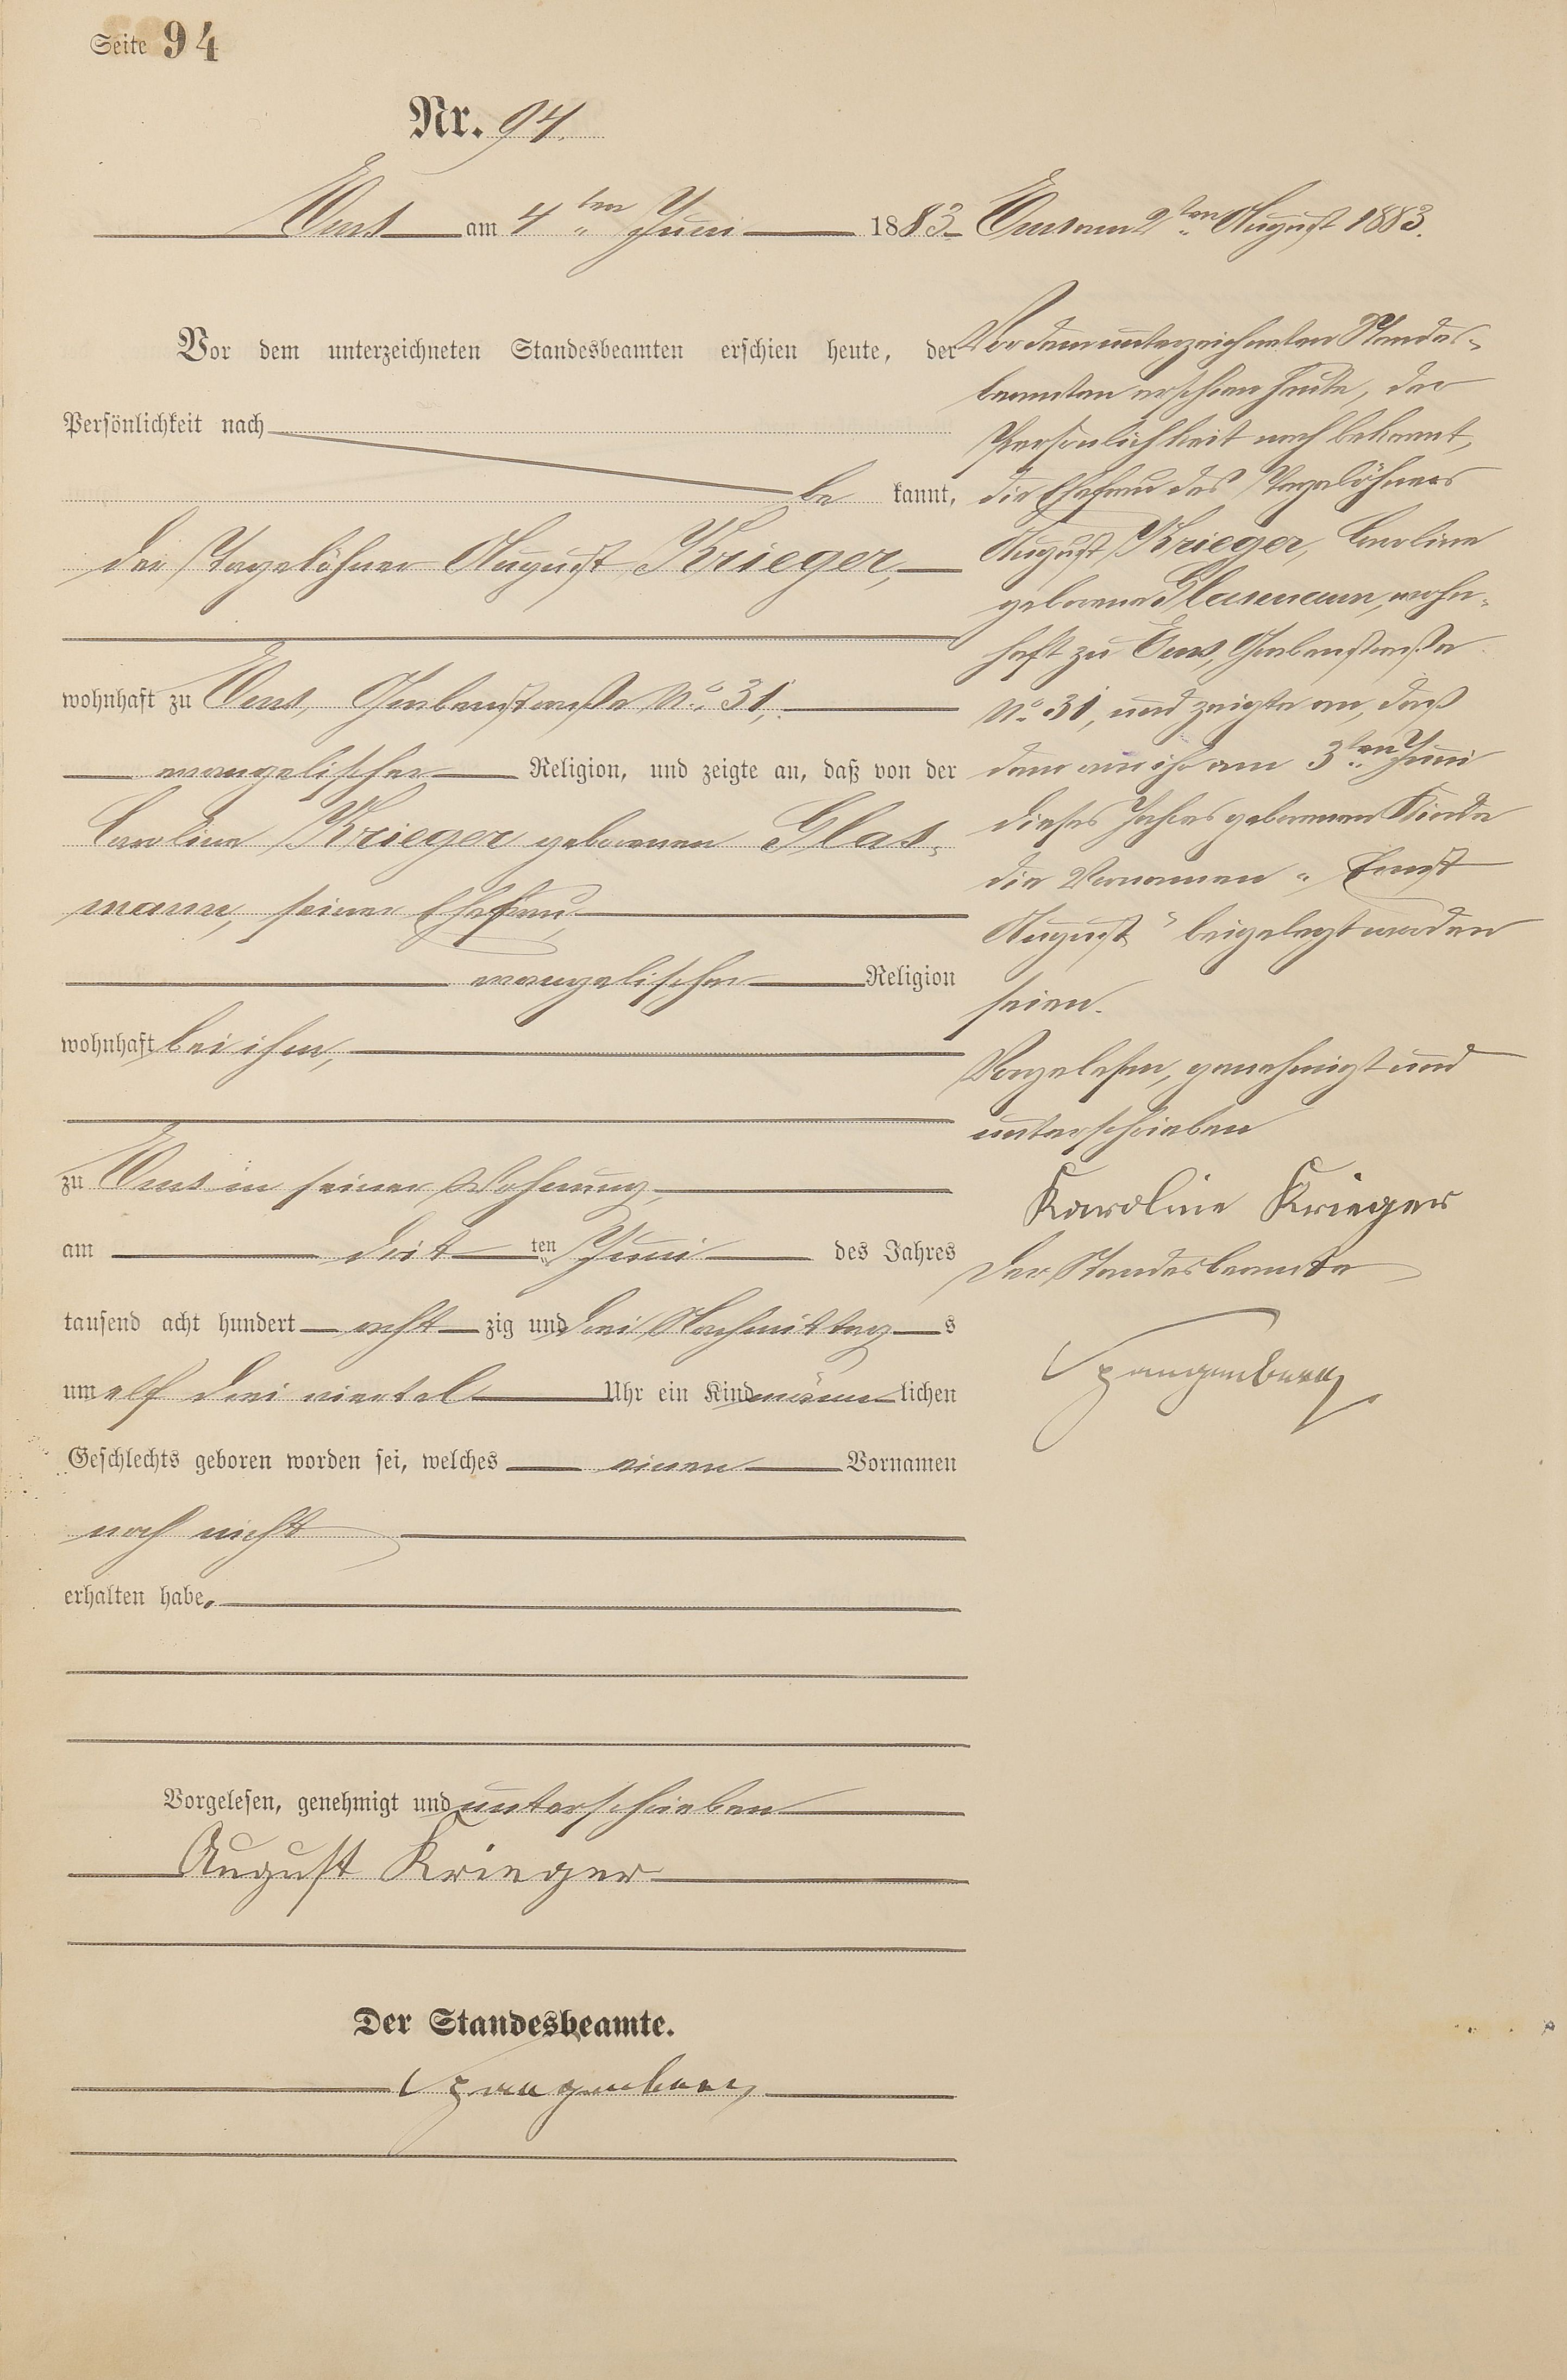 Seite 94
Nr. 94.
Ems am 4ten Juni 1883
Vor dem unterzeichneten Standesbeamten erschien heute, der
Persönlichkeit nach
be kannt,
der Tagelöhner August Krieger,
wohnhaft zu Ems, Grabenstraße No. 31,
evangelischer Religion, und zeigte an, daß von der
Caroline Krieger geborenen Glas-
mann, seiner Ehefrau,
evangelischer Religion
wohnhaft bei ihm,
zu Ems in seiner Wohnung,
am drit ten Juni des Jahres
tausend acht hundert acht zig und drei Nachmittag s
um elf drei viertel Uhr ein Kind männ lichen
Geschlechts geboren worden sei, welches einen Vornamen
noch nicht
erhalten habe.
Vorgelesen, genehmigt und unterschrieben
August Krieger
Der Standesbeamte.
Spangenberg
Ems am 2ten August 1883.
Vor dem unterzeichneten Standes-
beamten erschien heute, der
Persönlichkeit nach bekannt,
die Ehefrau des Tagelöhners
August Krieger, Caroline
geborene Glasmann, wohn-
haft zu Ems, Grabenstraße
No. 31, und zeigte an, daß
dem von ihr am 3ten Juni
dieses Jahres geborenen Kinde
die Vornamen „Ernst
August“ beigelegt worden
seien.
Vorgelesen, genehmigt und
unterschrieben
Karoline Krieger
Der Standesbeamte
Spangenberg